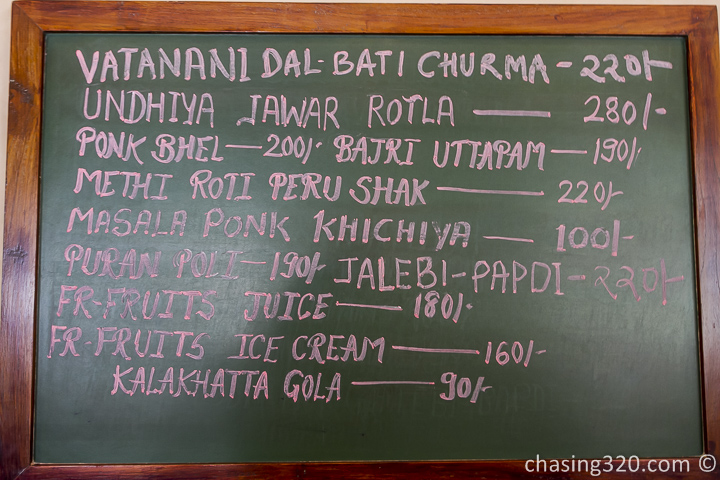 VATANANI DAL-BATI CHURMA - 220/-
UNDHIYA JAWAR ROTLA — 280/-
PONK BHEL — 200/- BAJRI UTTAPAM — 190/-
METHI ROTI PERU SHAK — 220/-
MASALA PONK KHICHIYA — 100/-
PURAN POLI — 190/- JALEBI-PAPDI - 220/-
FR-FRUITS JUICE — 180/-
FR-FRUITS ICE CREAM — 160/-
KALAKHATTA GOLA — 90/-
chasing320.com ©